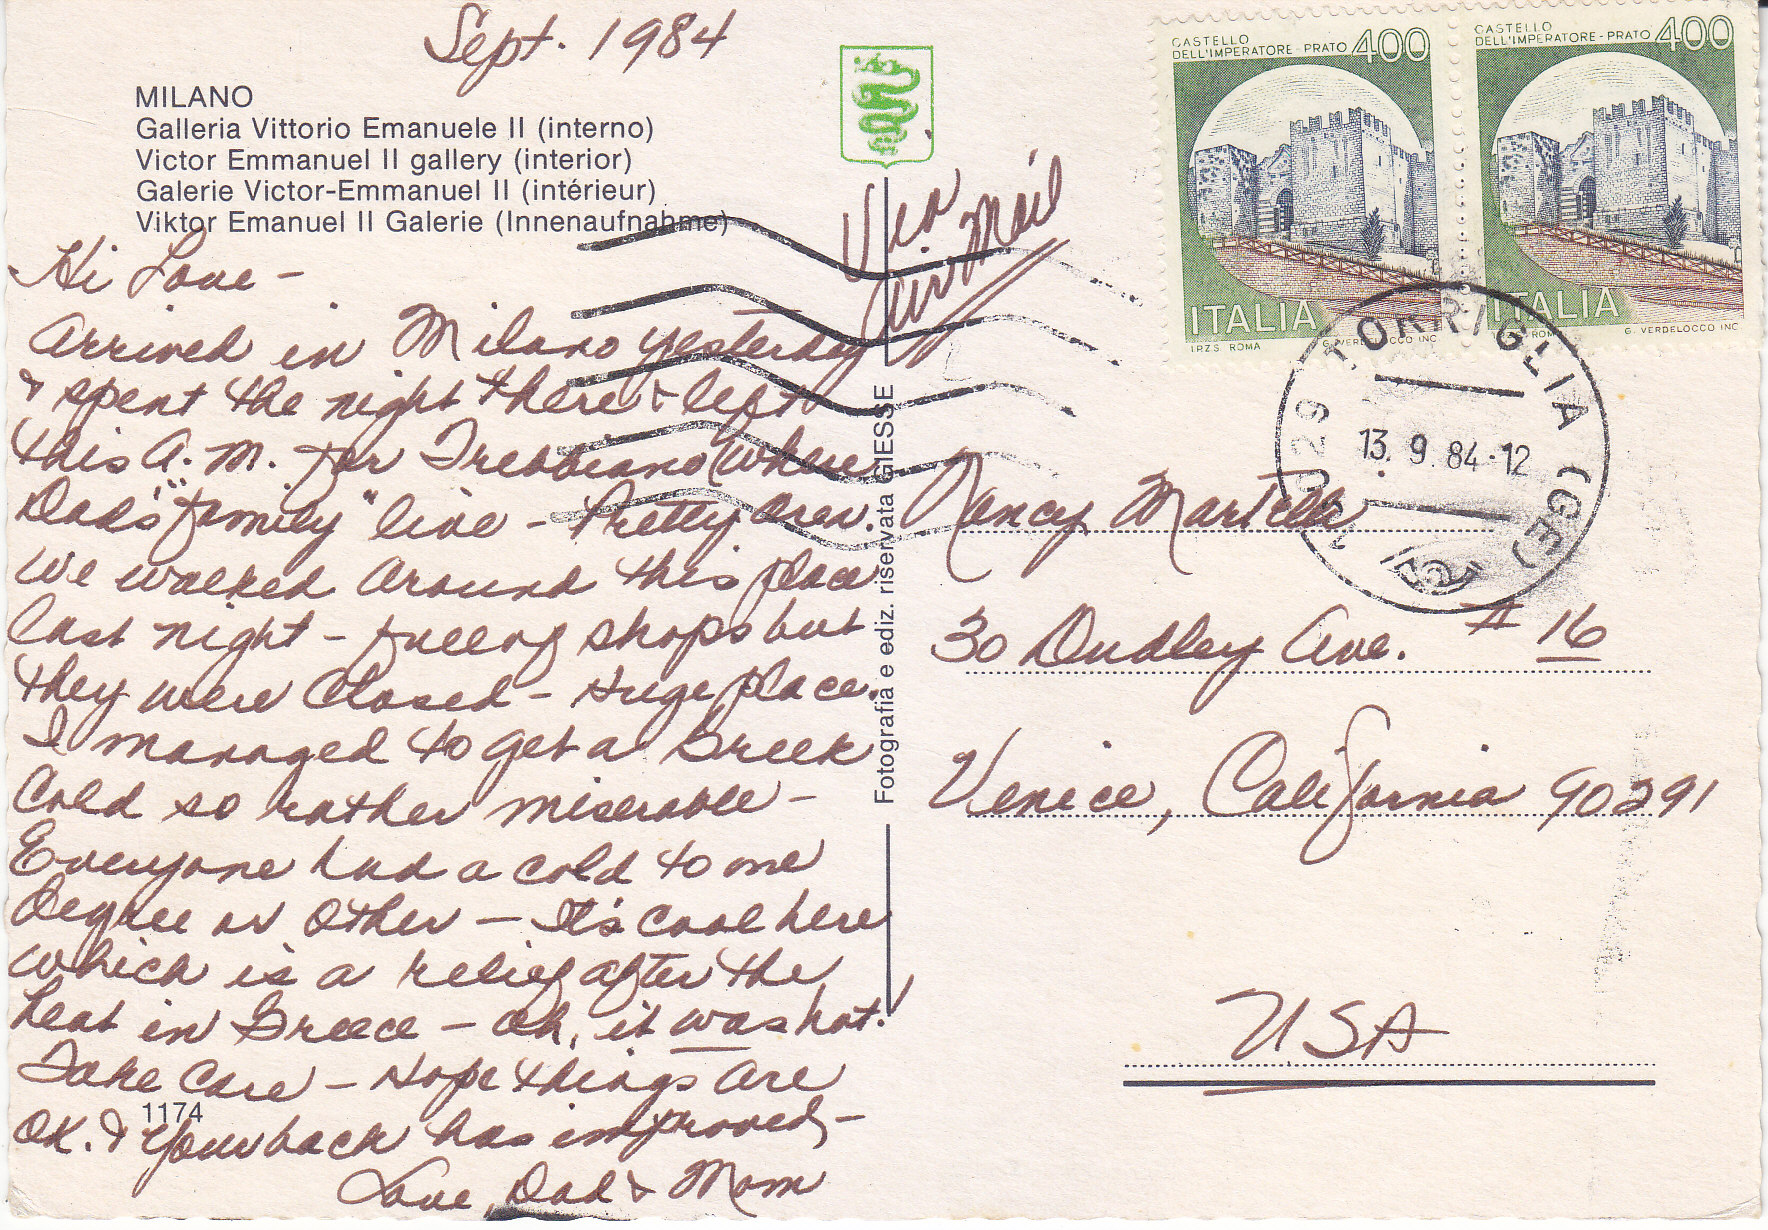 Sept. 1984
MILANO
Galleria Vittorio Emanuele II (interno)
Victor Emmanuel II gallery (interior)
Galerie Victor-Emmanuel II (intérieur)
Viktor Emanuel II Galerie (Innenaufnahme)
Hi Love -
Arrived in Milano yesterday
& spent the night there & left
this A.M. for Trebbiano (where
Dad's "family" live - Pretty area.
We walked around this place
last night - full of shops but
they were closed - Huge place.
I managed to get a Greek
Cold so rather miserable -
Everyone had a cold to one
Degree or other - It's cool here
which is a relief after the
heat in Greece - oh, it was hot!
Take Care - Hope things are
OK. & your back has improved -
Love, Dad & Mom
1174
Fotografia e ediz. riservata GIESSE
Via
Air Mail
CASTELLO
DELL'IMPERATORE - PRATO 400
ITALIA
I.P.Z.S. ROMA G. VERDELOCCO INC
CASTELLO
DELL'IMPERATORE - PRATO 400
ITALIA
G. VERDELOCCO INC
TORRIGLIA (GE)
13.9.84-12
Nancy Martelli
30 Dudley Ave. # 16
Venice, California 90291
USA